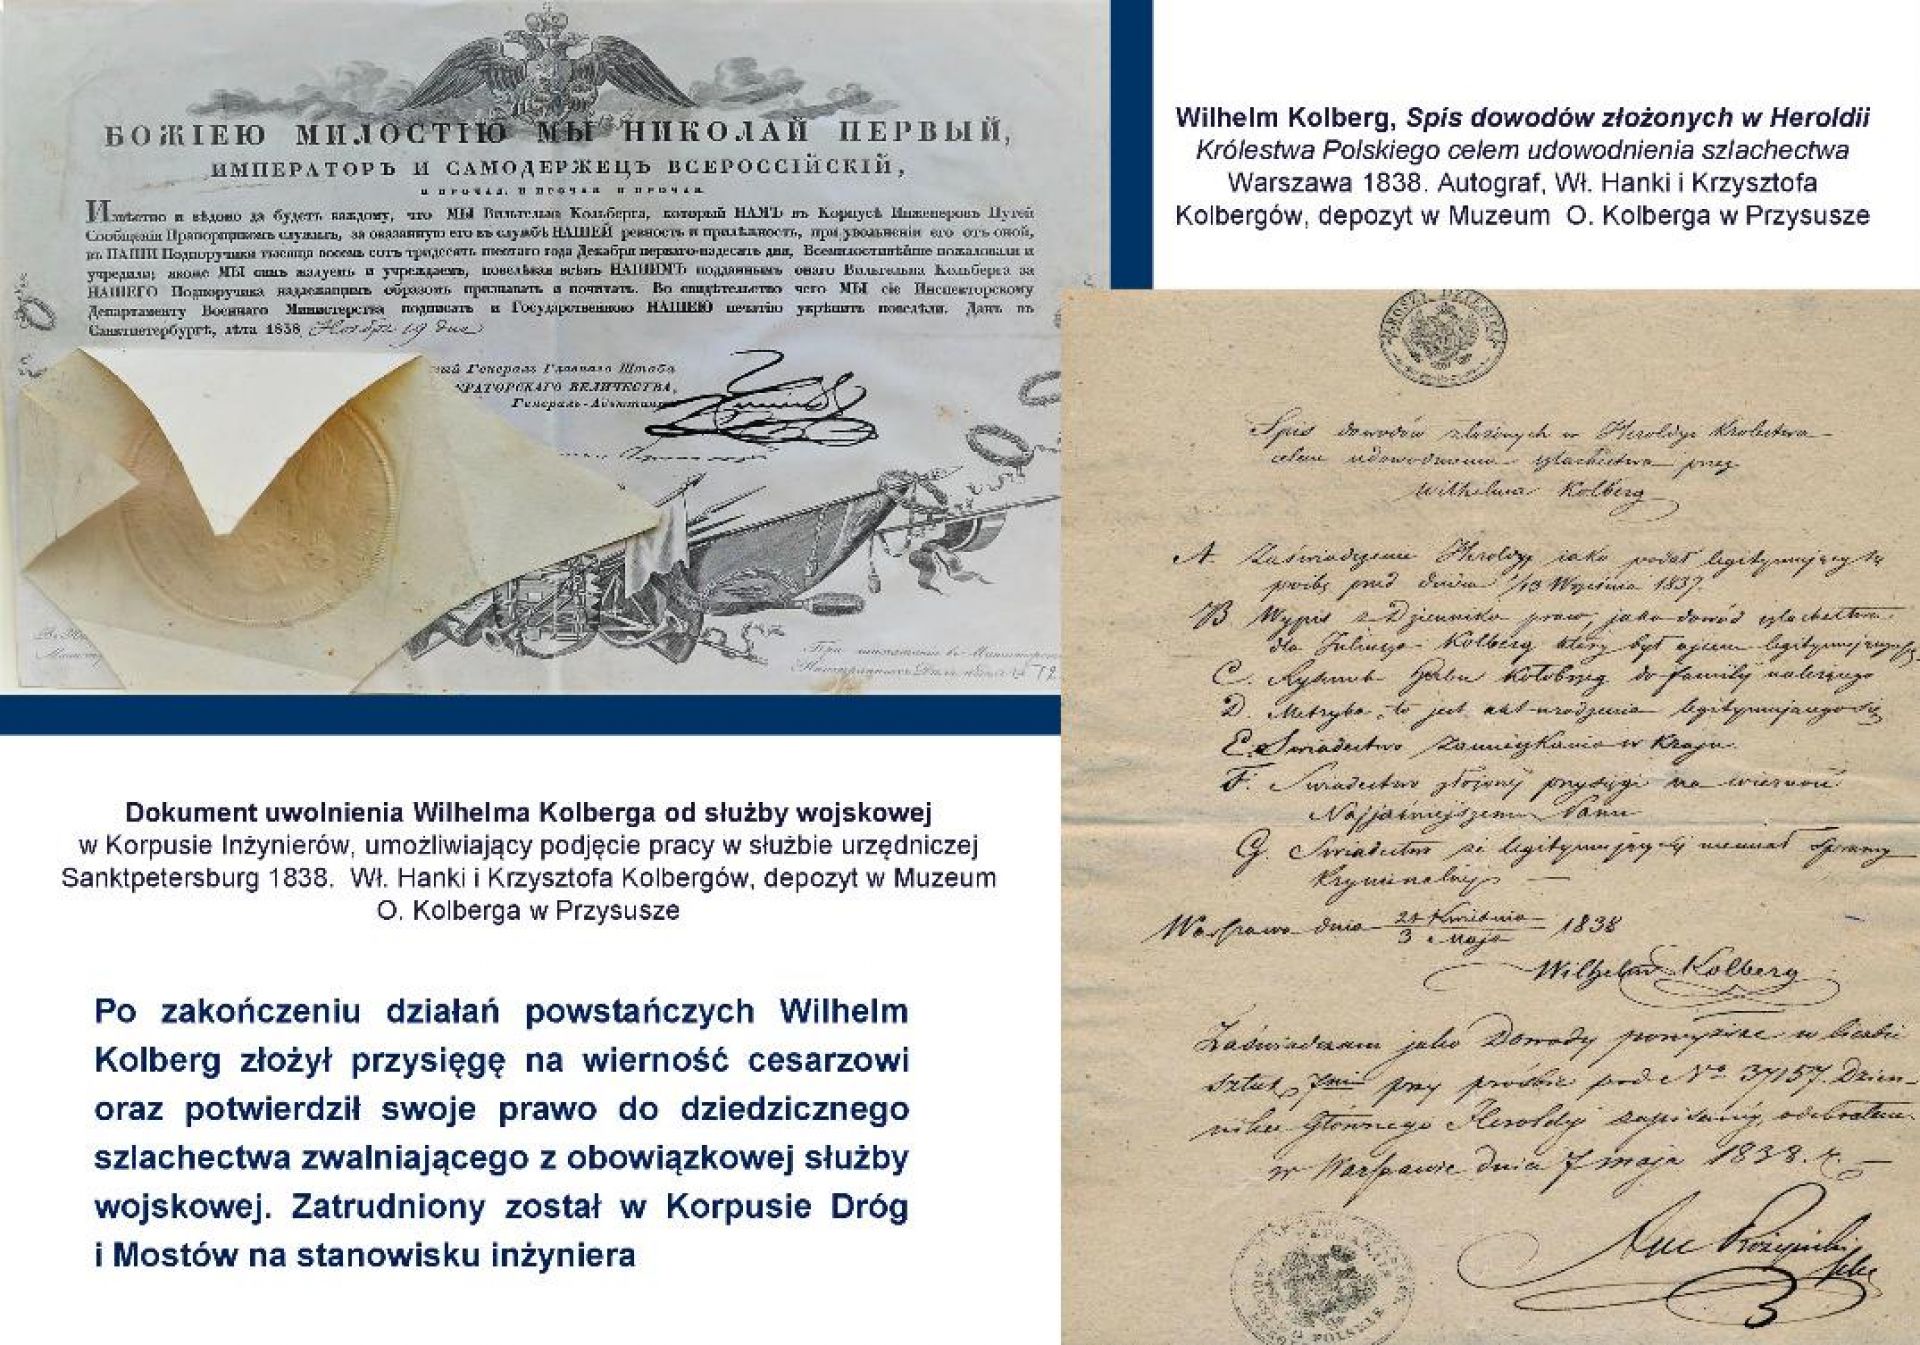 БОЖІЕЮ МИЛОСТІЮ МЫ НИКОЛАЙ ПЕРВЫЙ,
ИМПЕРАТОРЪ И САМОДЕРЖЕЦЪ ВСЕРОССІЙСКІЙ,
И ПРОЧАЯ, И ПРОЧАЯ И ПРОЧАЯ.
Извѣстно и вѣдомо да будетъ каждому, что МЫ Вильгельма Кольберга, который НАМЪ въ Корпусѣ Инженеровъ Путей
Сообщенія Прапорщикомъ служилъ, за оказанную его въ службѣ НАШЕЙ ревность и прилѣжность, при увольненіи его отъ оной,
въ НАШИ Подпоручики тысяча восемь сотъ тридесять шестаго года Декабря перваго-надесять дня, Всемилостивѣйше пожаловали и
учредили; якоже МЫ симъ жалуемъ и учреждаемъ, повелѣвая всѣмъ НАШИМЪ подданнымъ онаго Вильгельма Кольберга за
НАШЕГО Подпоручика надлежащимъ образомъ признавать и почитать. Во свидѣтельство чего МЫ сіе Инспекторскому
Департаменту Военнаго Министерства подписать и Государственною НАШЕЮ печатію укрѣпить повелѣли. Данъ въ
Санктпетербургѣ, лѣта 1838 Ноября 19 дня
Генералъ Главнаго Штаба
РАТОРСКАГО ВЕЛИЧЕСТВА,
Генералъ-Адъютантъ
Wilhelm Kolberg, Spis dowodów złożonych w Heroldii
Królestwa Polskiego celem udowodnienia szlachectwa
Warszawa 1838. Autograf, Wł. Hanki i Krzysztofa
Kolbergów, depozyt w Muzeum O. Kolberga w Przysusze
Spis dowodów złożonych w Heroldyi Krolestwa
celem udowodnienia szlachectwa przez
Wilhelma Kolberg
A. Zaświadczenie Heroldyi iako podał legitymujący się
prośbę pod dniem 1/13 Września 1837.
B Wypis z Dziennika praw, jako dowód szlachectwa
dla Juliusza Kolberg który był ojcem legitymującego się
C. Rysunek Herbu Kołobrzeg do familij należącego
D. Metryka, to jest akt urodzenia legitymującego się
E. Swiadectwo Zamieszkania w Kraju.
F. Swiadectwo złożonej przysięgi na wierność
Najjaśniejszemu Panu
G. Swiadectwo że legitymujący się niemiał Sprawy
Kryminalnej
Warszawa dnia 21 Kwietnia / 3 Maja 1838
Wilhelm Kolberg
Zaświadczam jako Dowody powyższe w liczbie
sztuk 7miu przy prośbie pod No 37157. Dzien-
nika Głównego Heroldyi zapisanej, odebrałem.
w Warszawie dnia 7 maja 1838. r.
Dokument uwolnienia Wilhelma Kolberga od służby wojskowej
w Korpusie Inżynierów, umożliwiający podjęcie pracy w służbie urzędniczej
Sanktpetersburg 1838. Wł. Hanki i Krzysztofa Kolbergów, depozyt w Muzeum
O. Kolberga w Przysusze
Po zakończeniu działań powstańczych Wilhelm
Kolberg złożył przysięgę na wierność cesarzowi
oraz potwierdził swoje prawo do dziedzicznego
szlachectwa zwalniającego z obowiązkowej służby
wojskowej. Zatrudniony został w Korpusie Dróg
i Mostów na stanowisku inżyniera